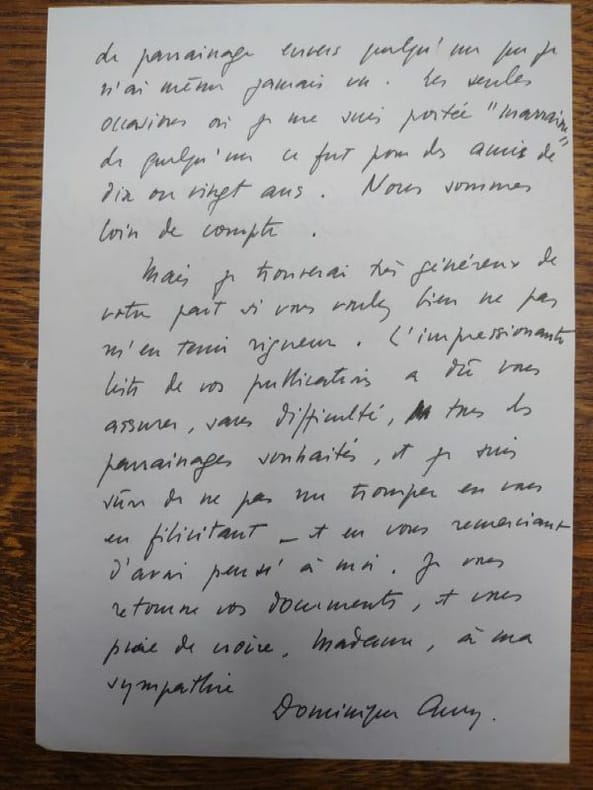 de parrainage envers quelqu'un que je
n'ai même jamais vu. Les seules
occasions où je me suis portée "marraine"
de quelqu'un ce fut pour des amis de
dix ou vingt ans. Nous sommes
loin de compte.
Mais je trouverai très généreux de
votre part si vous voulez bien ne pas
m'en tenir rigueur. L'impressionnante
liste de vos publications a dû vous
assurer, sans difficulté, tous les
parrainages souhaités, et je suis
sûre de ne pas me tromper en vous
en félicitant _ et en vous remerciant
d'avoir pensé à moi. Je vous
retourne vos documents, et vous
prie de croire, Madame, à ma
sympathie
Dominique Aury.